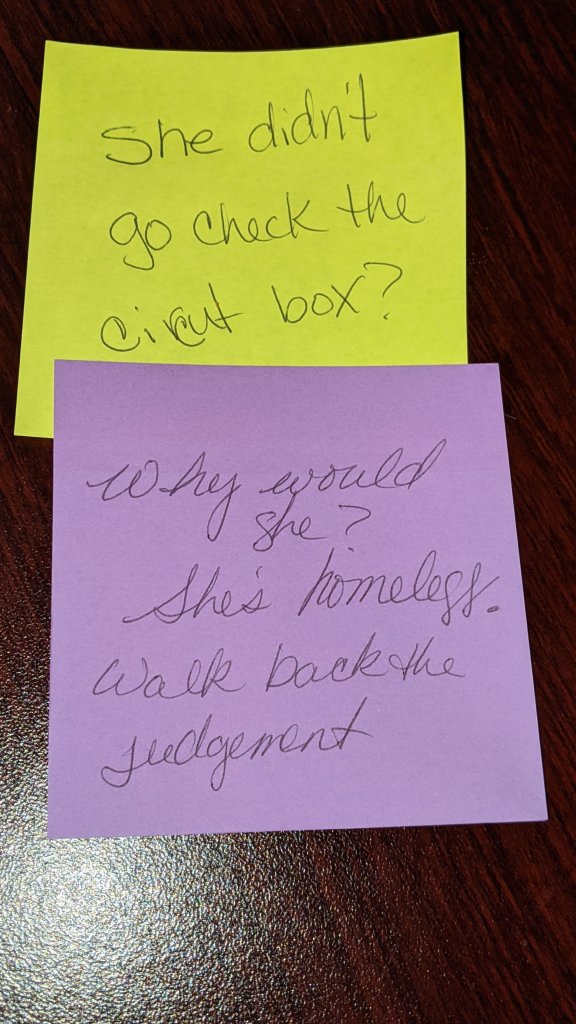 She didn't
go check the
circut box?
Why would
she?
She's homeless.
Walk back the
judgement